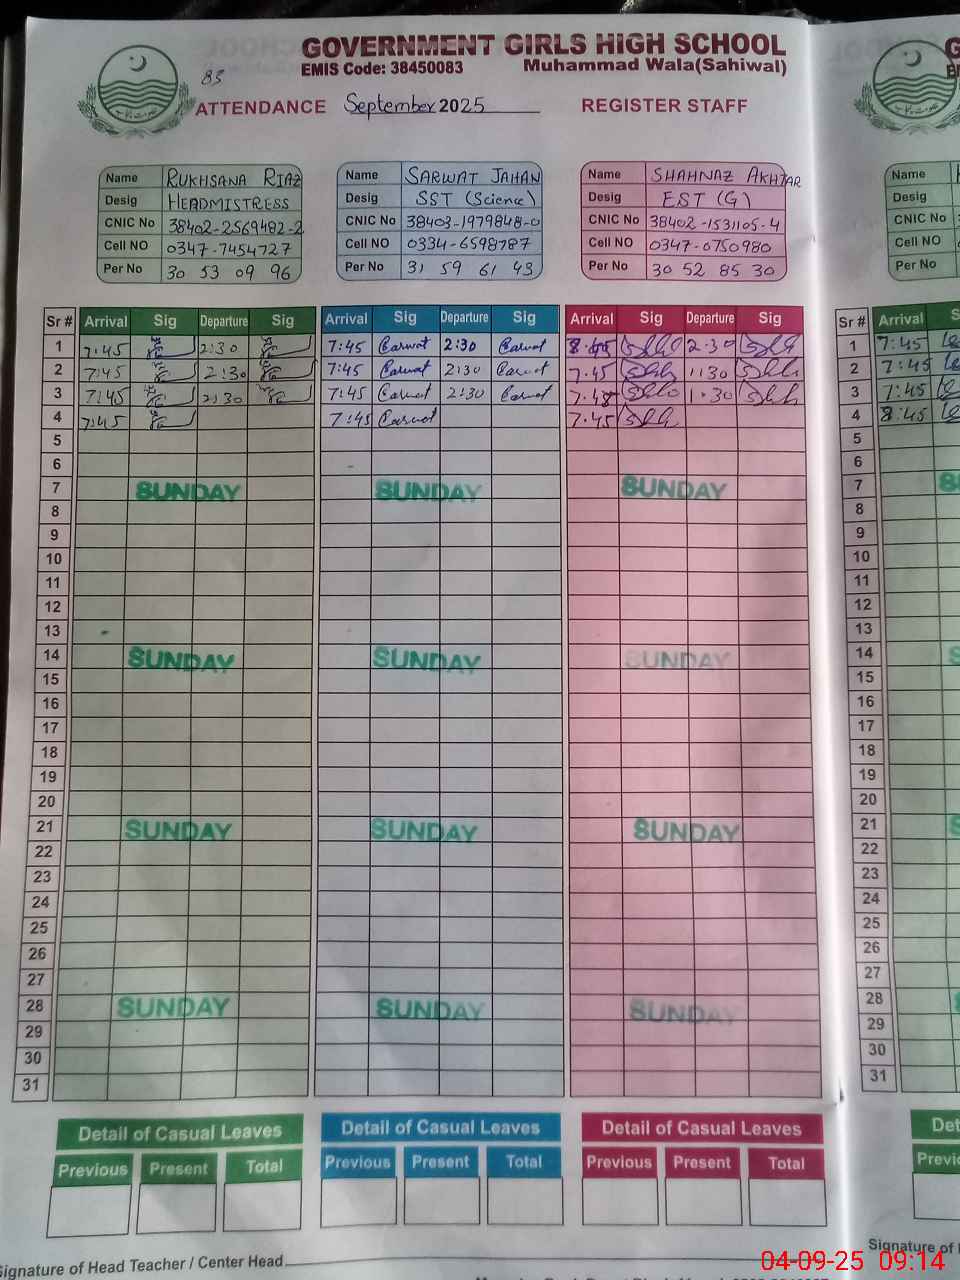 GOVERNMENT GIRLS HIGH SCHOOL
EMIS Code: 38450083 Muhammad Wala(Sahiwal)
85
ATTENDANCE September 2025 REGISTER STAFF
Name RUKHSANA RIAZ
Desig HEADMISTRESS
CNIC No 38402-2569482-2
Cell NO 0347-7454727
Per No 30 53 09 96
Name SARWAT JAHAN
Desig SST (Science)
CNIC No 38403-1979848-0
Cell NO 0334-6598787
Per No 31 59 61 43
Name SHAHNAZ AKHTAR
Desig EST (G)
CNIC No 38402-1531105-4
Cell NO 0347-0750980
Per No 30 52 85 30
Name
Desig
CNIC No
Cell NO
Per No
Sr # Arrival Sig Departure Sig Arrival Sig Departure Sig Arrival Sig Departure Sig Sr # Arrival
1 7:45 2:30 7:45 Sarwat 2:30 Sarwat 2:30 1 7:45
2 7:45 2:30 7:45 Sarwat 2:30 Sarwat 7.45 1:30 2 7:45
3 7:45 2:30 7:45 Sarwat 2:30 Sarwat 7.45 1.30 3 7:45
4 7:45 7:45 Sarwat 7.45 4 8:45
5 5
6 6
7 SUNDAY SUNDAY SUNDAY 7
8 8
9 9
10 10
11 11
12 12
13 13
14 SUNDAY SUNDAY SUNDAY 14
15 15
16 16
17 17
18 18
19 19
20 20
21 SUNDAY SUNDAY SUNDAY 21
22 22
23 23
24 24
25 25
26 26
27 27
28 SUNDAY SUNDAY SUNDAY 28
29 29
30 30
31 31
Detail of Casual Leaves Detail of Casual Leaves Detail of Casual Leaves
Previous Present Total Previous Present Total Previous Present Total
Signature of Head Teacher / Center Head
Signature of
04-09-25 09:14